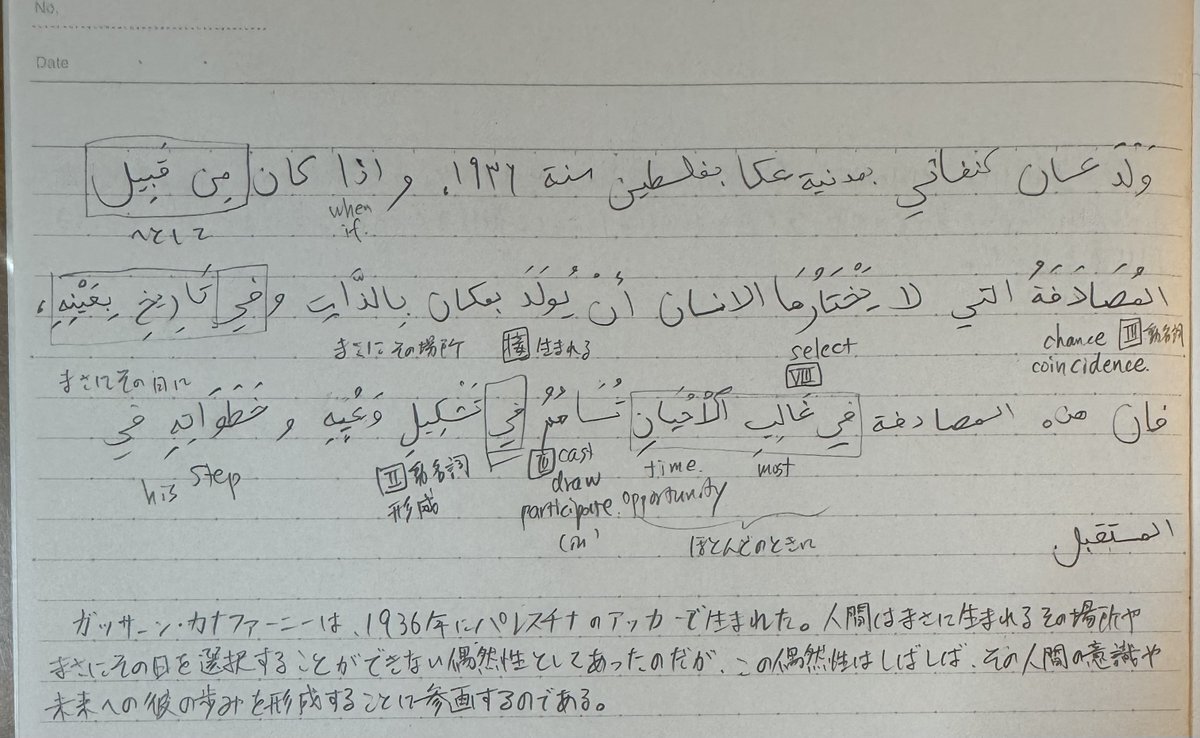 No.
Date
وَلَدَ غسان كنفاني بمدنية عكا بفلسطين سنة ١٩٣٦، و اذا كان مِن قَبِيل
when
if.
へとして
المُصَادَفَةُ التي لا يَخْتَارُهَا الانسان أَنْ يُولَدَ بمكان بِالذَّاتِ و فِي تَارِيخٍ بِعَيْنِهِ،
まさにその場所 生まれる select VIII chance III 動名詞
coincidence.
まさにその日に
فان هذه المصادفة فِي غَالِبِ الأَحْيَانِ تُسَاهِمُ فِي تَشْكِيلِ وَعْيِهِ و خَطَوَاتِهِ فِي
his step II 動名詞 III cast time. most
形成 draw opportunity
participate.
(in) ほとんどのときに
المستقبل
ガッサーン・カナファーニーは、1936年にパレスチナのアッカーで生まれた。人間はまさに生まれるその場所や
まさにその日を選択することができない偶然性としてあったのだが、この偶然性はしばしば、その人間の意識や
未来への彼の歩みを形成することに参画するのである。